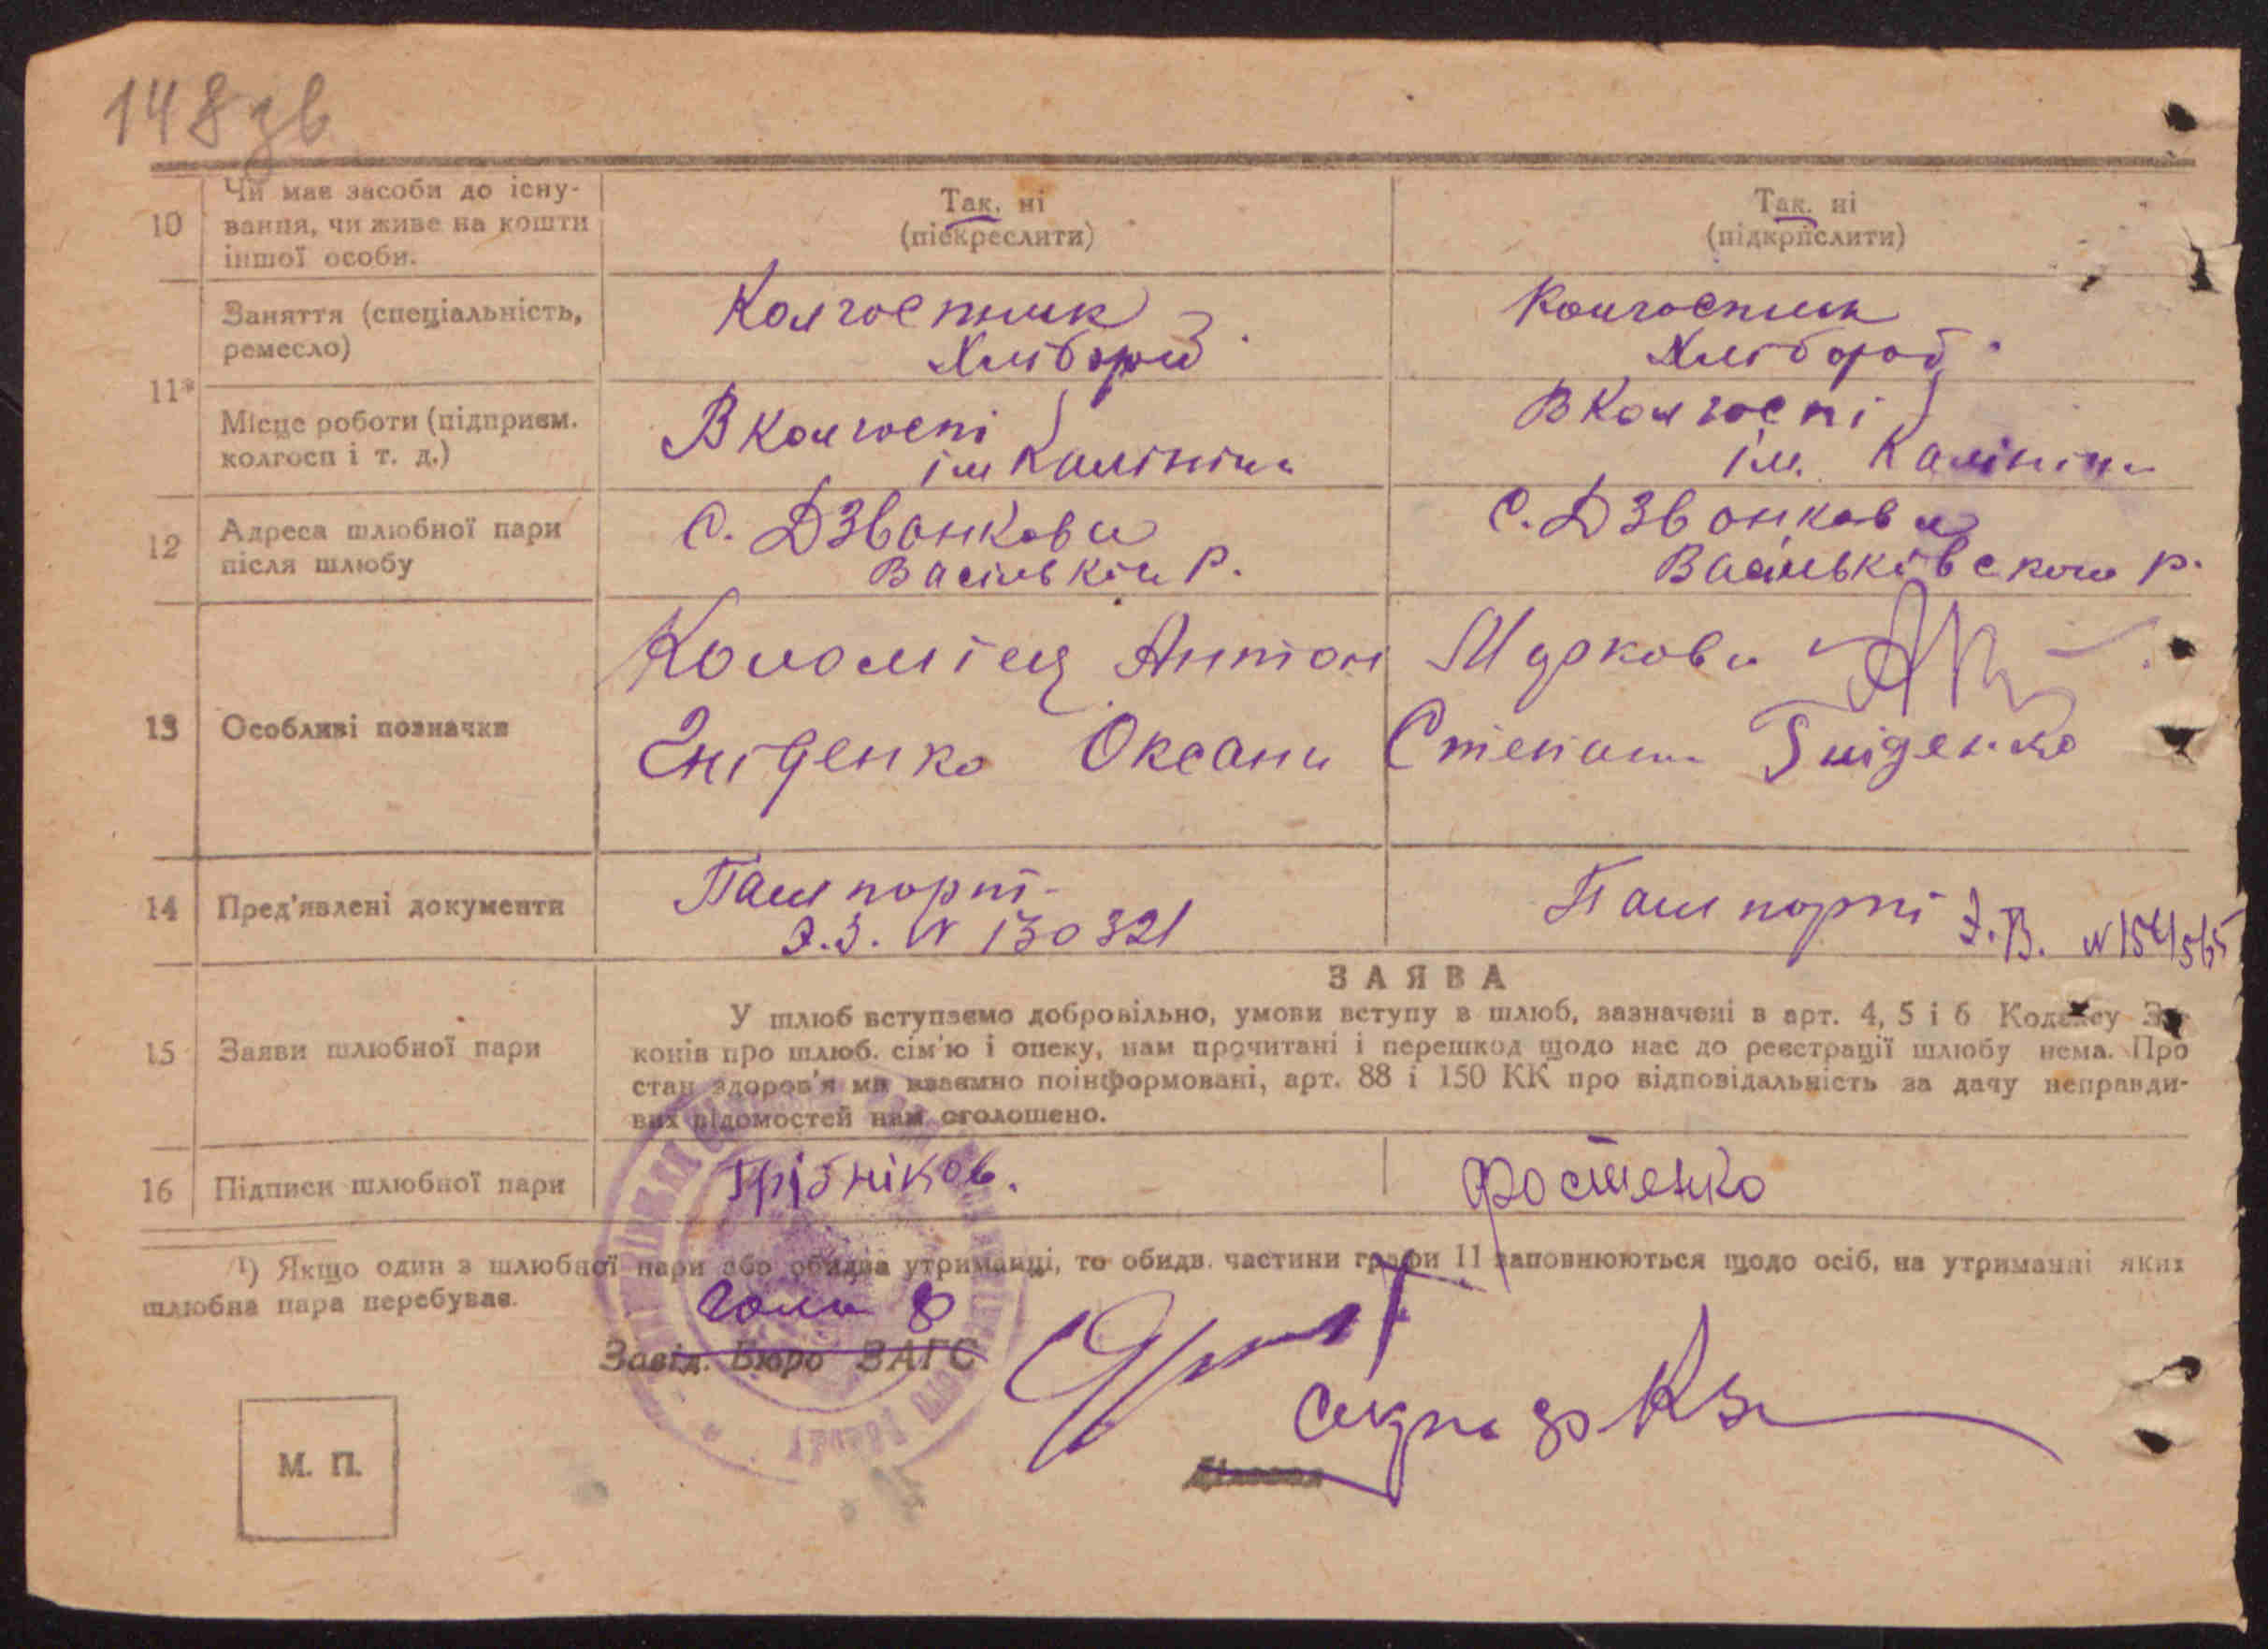 148 зв
10
Чи має засоби до існу-
вання, чи живе на кошти
іншої особи.
Так, ні
(піскреслити)
Так. ні
(підкрислити)
11*
Заняття (спеціальність,
ремесло)
Колгоспник
Хлібороб
Колгоспник
Хлібороб
Місце роботи (підприєм.
колгосп і т. д.)
В Колгоспі
ім Калініна
В Колгоспі
ім. Калініна
12
Адреса шлюбної пари
після шлюбу
С. Дзвонкова
Васильків Р.
С. Дзвонкова
Васильківського р.
13
Особливі позначки
Коломієц Антон Маркови
Гніденко Оксани Степани Гніденко
14
Пред'явлені документи
Пашпорт
Э.З. № 130321
Пашпорт Э.В. № 154565
15
Заяви шлюбної пари
ЗАЯВА
У шлюб вступаємо добровільно, умови вступу в шлюб, зазначені в арт. 4, 5 і 6 Кодексу За-
конів про шлюб. сім'ю і опеку, нам прочитані і перешкод щодо нас до реєстрації шлюбу нема. Про
стан здоров'я ми взаємно поінформовані, арт. 88 і 150 КК про відповідальність за дачу неправди-
вих відомостей нам оголошено.
16
Підписи шлюбної пари
Грібніков.
Фостенко
¹) Якщо один з шлюбної пари або обидва утриманці, то обидв. частини графи 11 заповнюються щодо осіб, на утриманні яких
шлюбна пара перебуває.
Голова
Завід. Бюро ЗАГС
Діловод
М. П.